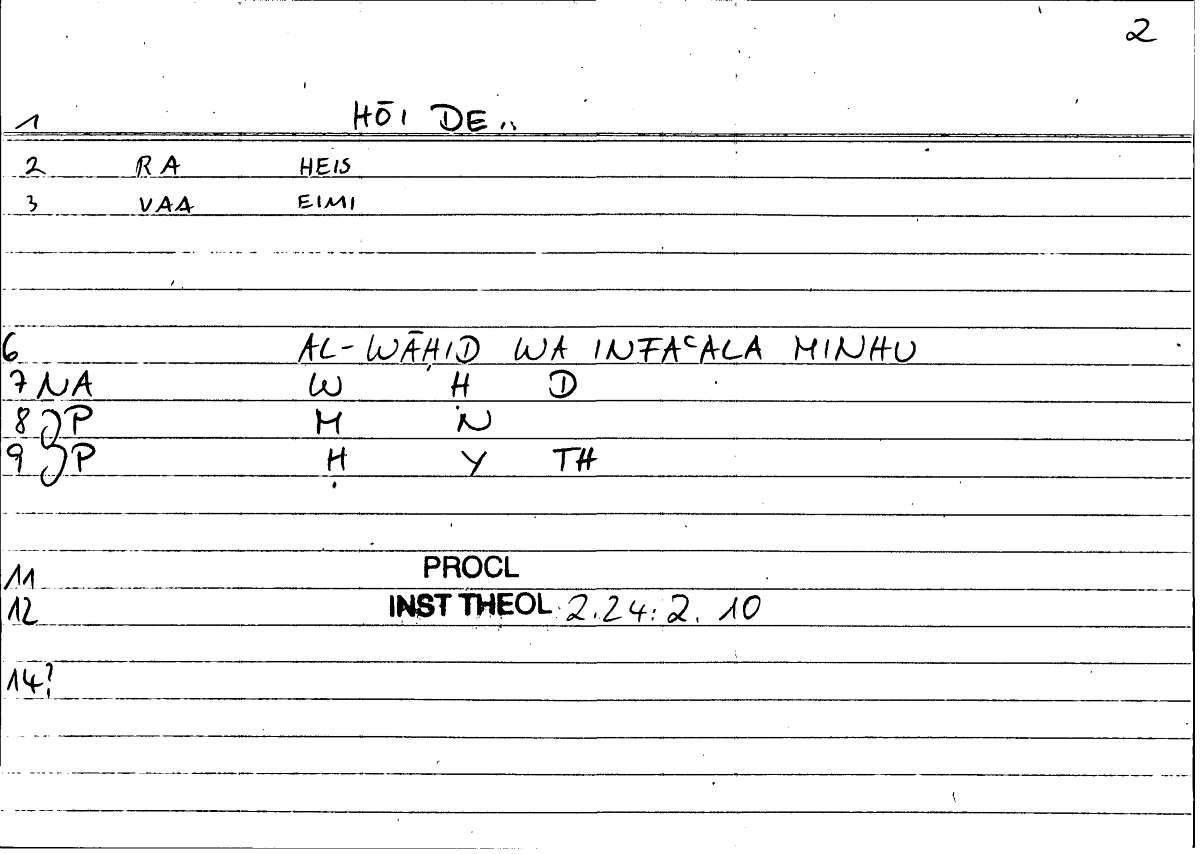 2
1 HŌI DE ..
2 RA HEIS
3 VAA EIMI
6 AL-WĀḤID WA INFAᶜALA MINHU
7 NA W Ḥ D
8 JP M N
9 JP Ḥ Y TH
11 PROCL
12 INST THEOL 2.24:2.10
14?